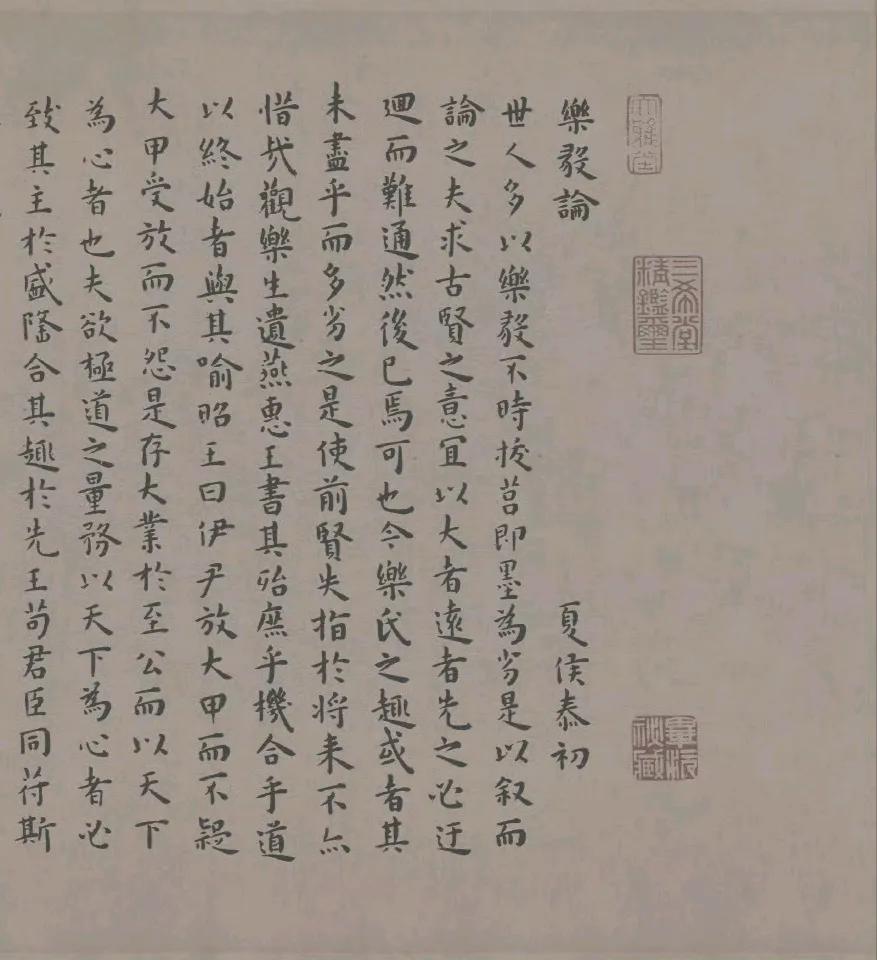 三希堂精鑑璽
樂毅論 夏侯泰初
世人多以樂毅不時拔莒即墨為劣是以叙而
論之夫求古賢之意冝以大者遠者先之必迂
迴而難通然後已焉可也今樂氏之趣或者其
未盡乎而多劣之是使前賢失指於将来不亦
惜哉觀樂生遺燕惠王書其殆庶乎機合乎道
以終始者與其喻昭王曰伊尹放大甲而不疑
大甲受放而不怨是存大業於至公而以天下
為心者也夫欲極道之量務以天下為心者必
致其主於盛隆合其趣於先王苟君臣同苻斯